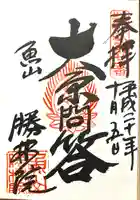 奉拝
平成二十一年
十月五日
大原問答
魚山
勝林院